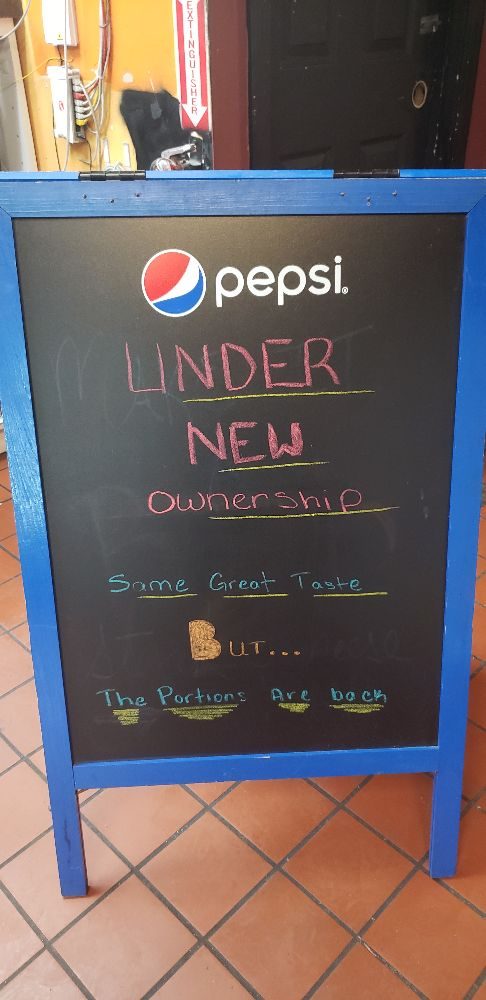 EXTINGUISHER
pepsi
UNDER
NEW
Ownership
Same Great Taste
BUT...
The Portions Are back